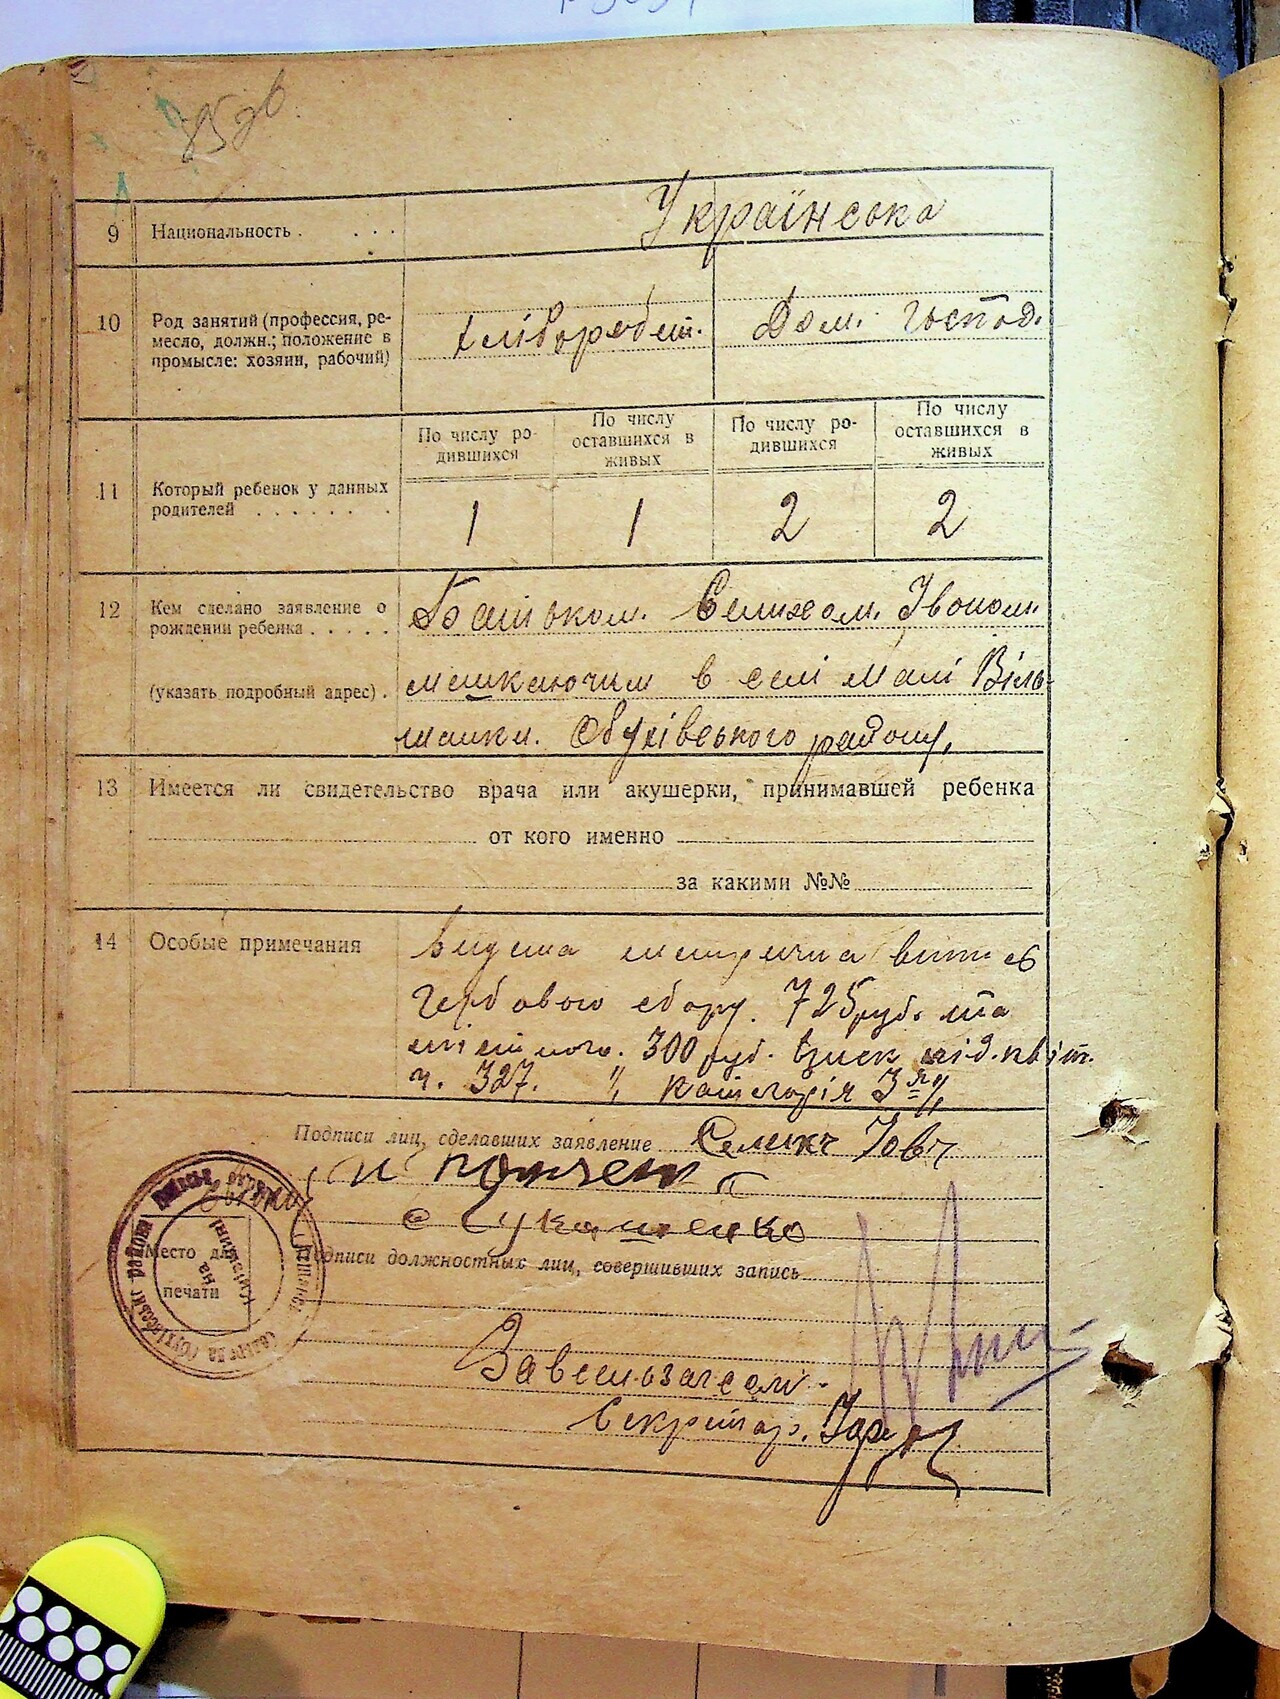 85 зв
9 Национальность . . . . Українська
10 Род занятий (профессия, ре-
месло, должн.; положение в
промысле: хозяин, рабочий)
хлібороб Дом. господ.
11 Который ребенок у данных
родителей . . . . . . .
По числу ро-
дившихся
По числу
оставшихся в
живых
По числу ро-
дившихся
По числу
оставшихся в
живых
1 1 2 2
12 Кем сделано заявление о
рождении ребенка . . . . .
(указать подробный адрес) .
Батьком. Іваном.
мешкаючим в селі Малі Віль-
шанки. Обухівського району,
13 Имеется ли свидетельство врача или акушерки, принимавшей ребенка
от кого именно
за какими №№
14 Особые примечания
Видана метрична витяг
Гербового сбору. 725 руб. та
300 руб. квіт.
ч. 327. " категорія 3 я "
Подписи лиц, сделавших заявление
Лукашенко
Подписи должностных лиц, совершивших запись
Место для
печати
Завсільзагсом.
Секретар.